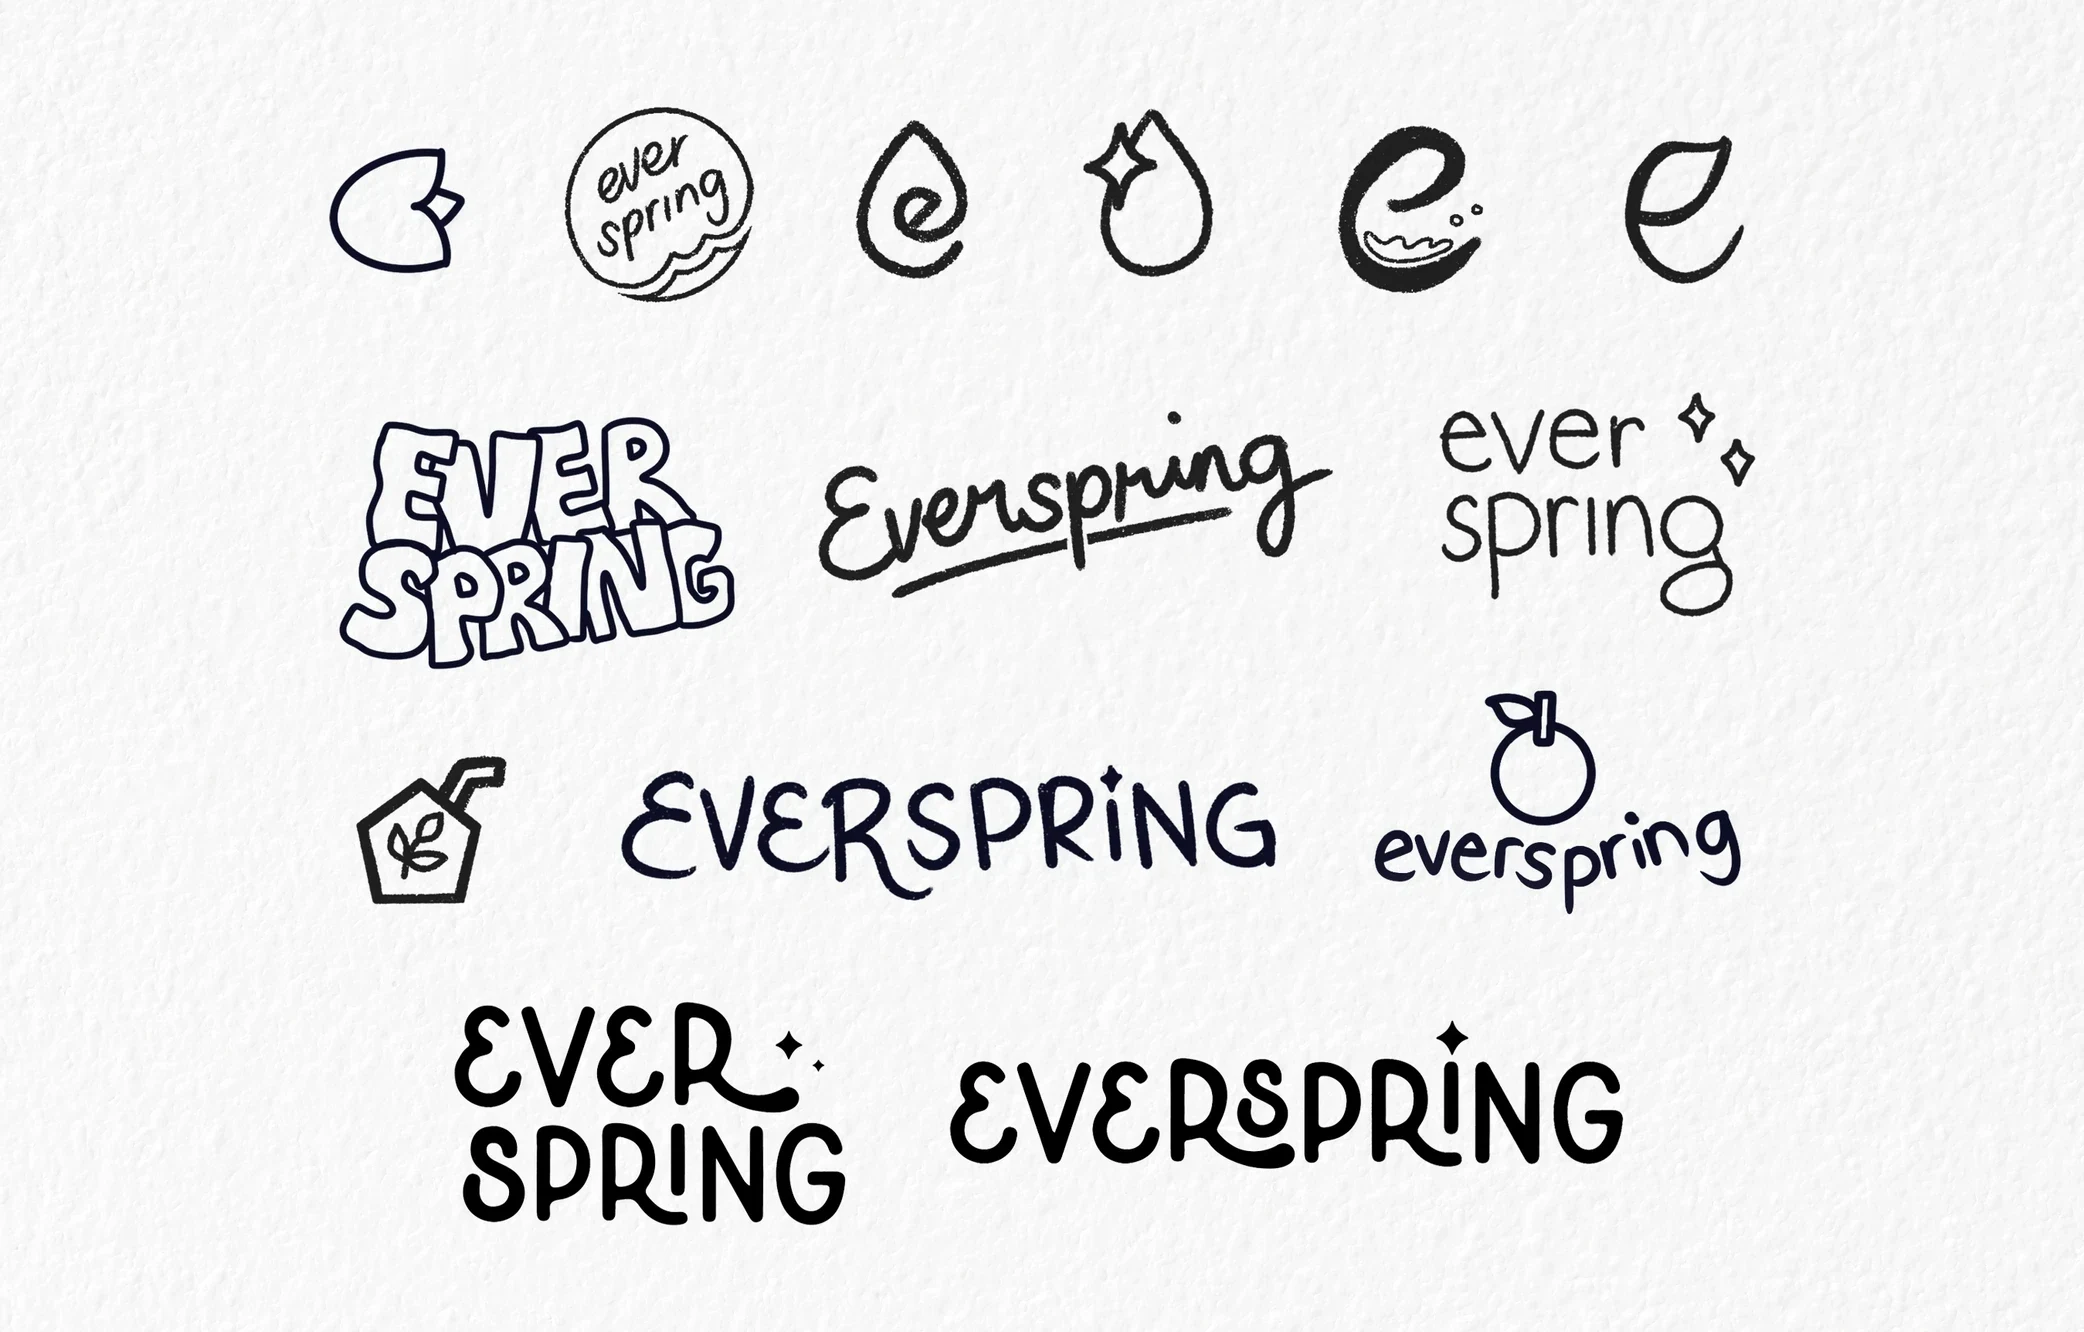 ever
spring
e
e
e
EVER
SPRING
Everspring
ever
spring
EVERSPRiNG
everspring
EVER
SPRING
EVERSPRiNG